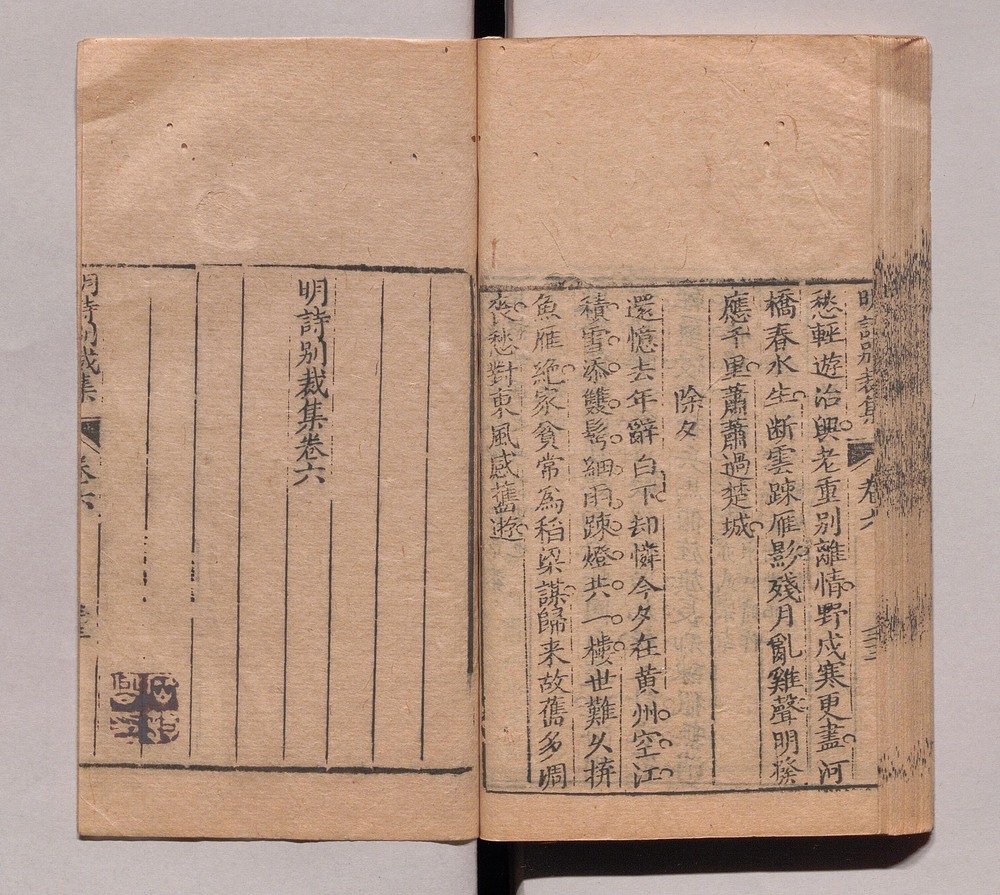 明詩別裁集 卷六
愁輕遊冶興老重別離情野戍寒更盡河
橋春水生断雲踈雁影殘月亂雞聲明發
應千里蕭蕭過楚城
除夕
還憶去年辭白下却憐今夕在黄州空江
積雪添雙鬢細雨踈燈共一樓世難久拚
魚雁絶家貧常為稻梁謀歸来故舊多凋
喪愁對東風感舊遊
明詩別裁集卷六
明詩別裁集 卷六